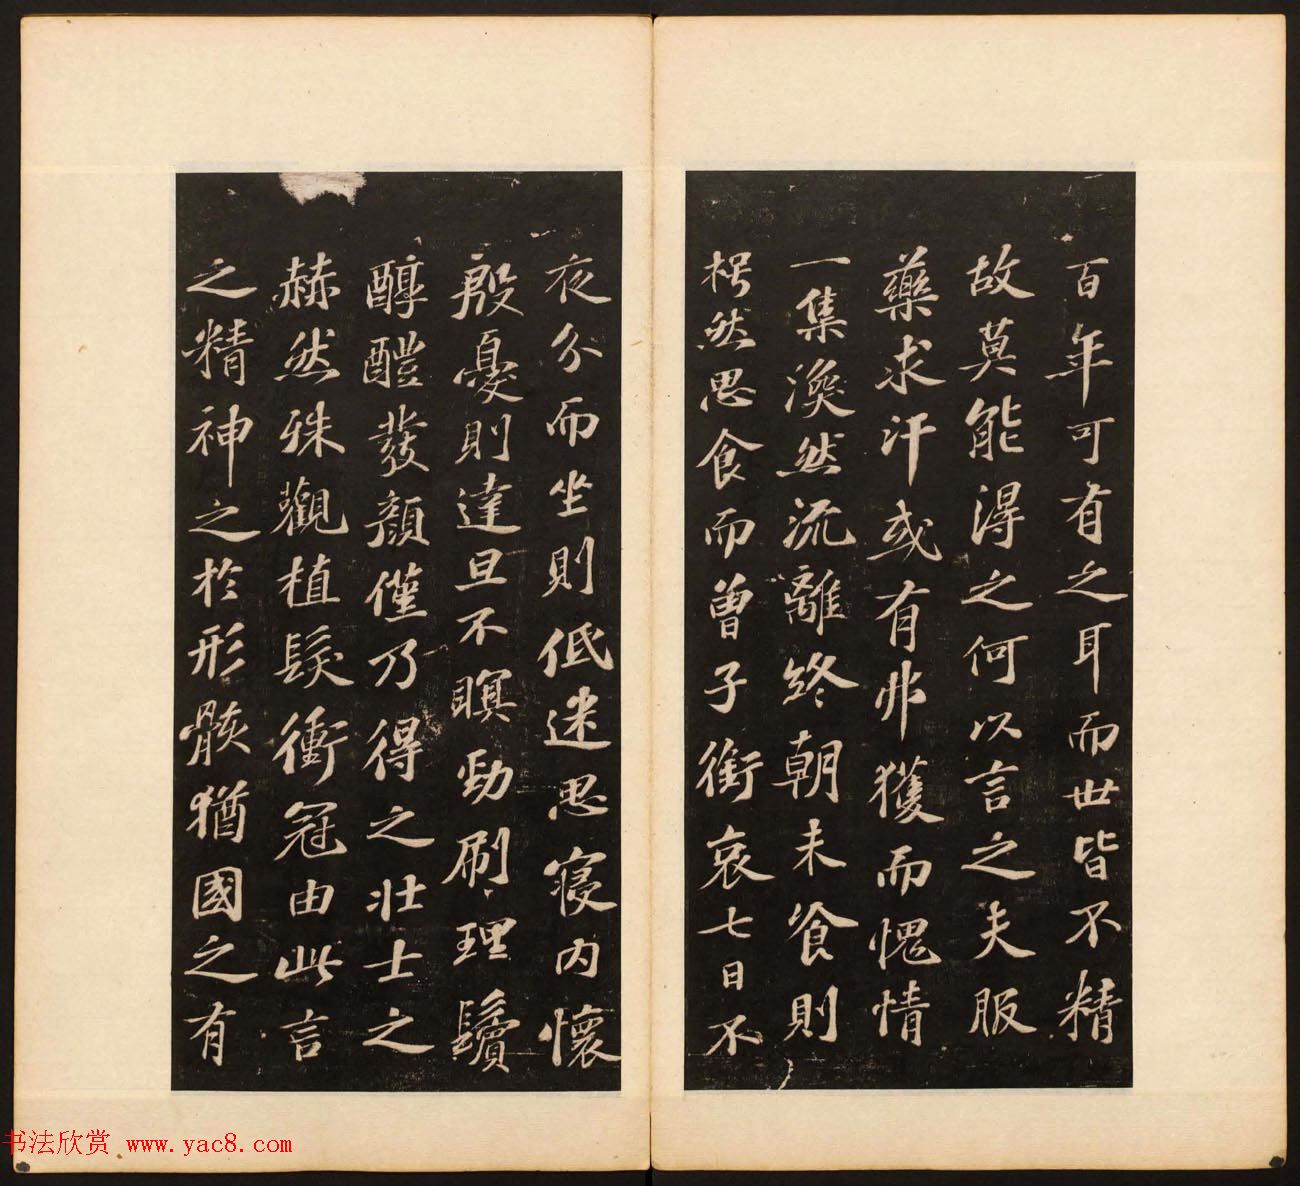 百年可有之耳而世皆不精
故莫能得之何以言之夫服
藥求汗或有弗獲而愧情
一集渙然流離終朝未飡則
枵然思食而曾子銜哀七日不
夜分而坐則低迷思寢內懷
殷憂則達旦不瞑勁刷理鬢
醇醴發顏僅乃得之壯士之
赫然殊觀植髮衝冠由此言
之精神之於形骸猶國之有
书法欣赏 www.yac8.com